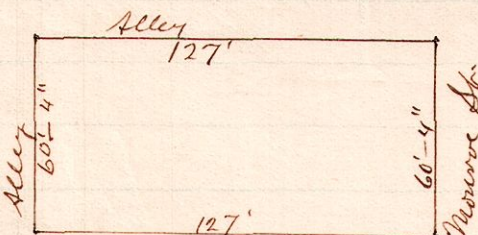 Alley
127'
Alley
60'-4"
60'-4"
Monroe St.
127'